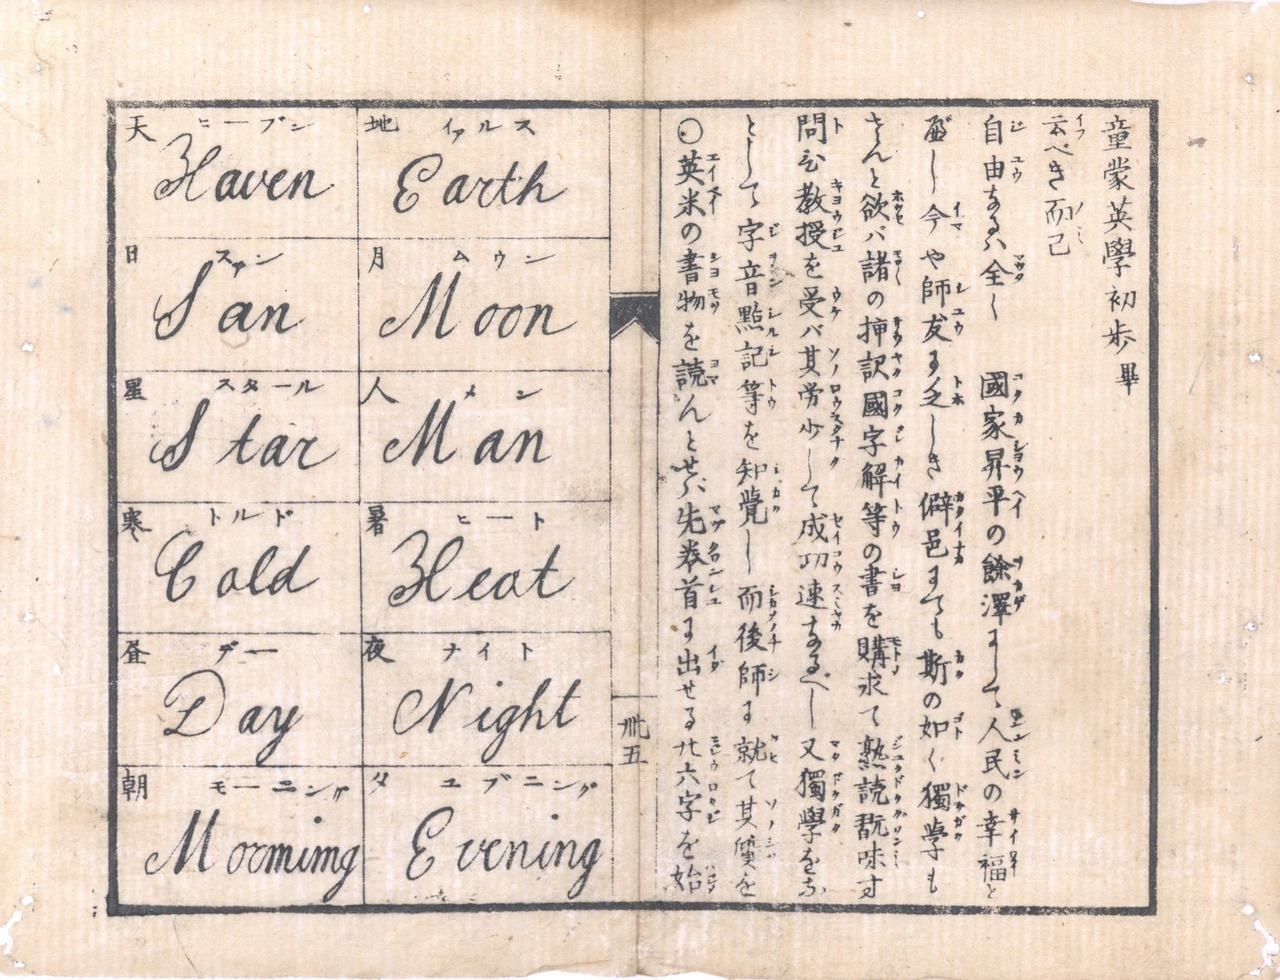 ○英米の書物を読んとせバ先巻首に出せる廿六字を始
として字音點記等を知覺し而後師に就て其質を
問ひ教授を受バ其労少して成功速なるべし又獨學をな
さんと欲バ諸の挿訳國字解等の書を購求て熟読翫味す
べし今や師友に乏しき僻邑までも斯の如く獨學も
自由なるハ全く 國家昇平の餘澤にして人民の幸福と
云べき而已
童蒙英學初歩 畢
卅五
天 ヒーブン
Haven
地 イァルス
Earth
日 スァン
San
月 ムウン
Moon
星 スタール
Star
人 メン
Man
寒 トルド
Cold
暑 ヒート
Heat
昼 デー
Day
夜 ナイト
Night
朝 モーニング
Morming
夕 ユブニング
Evening